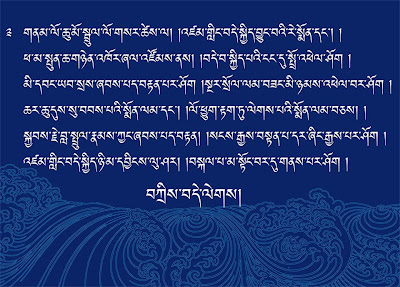 ༢ གནམ་ལོ་ཆུ་མོ་སྦྲུལ་ལོ་གསར་ཚེས་ལ། །འཛམ་གླིང་བདེ་སྐྱིད་བྱུང་བའི་རེ་སྨོན་དང༌། །
ཕ་མ་སྤུན་ཆ་གཉེན་འཁོར་ཞལ་འཛོམས་ནས། །བདེ་བ་སྐྱིད་པའི་ངང་དུ་སྤྲོ་འཕེལ་ཤོག །
མི་དབང་ཡབ་སྲས་ཞབས་པད་བརྟན་པར་ཤོག །སྔར་སྲོལ་ལམ་བཟང་མི་ཉམས་འཕེལ་བར་ཤོག །
ཆར་ཆུ་དུས་སུ་བབས་པའི་སྨོན་ལམ་དང༌། །ལོ་ཕྱུག་རྟག་ཏུ་ལེགས་པའི་སྨོན་ལམ་བཅས། །
སྐྱབས་རྗེ་བླ་སྤྲུལ་རྣམས་ཀྱང་ཞབས་པད་བརྟན། །སངས་རྒྱས་བསྟན་པ་དར་ཞིང་རྒྱས་པར་ཤོག །
འཛམ་གླིང་བདེ་སྐྱིད་ཉི་མ་དབྱིངས་ལུ་ཤར། །བསྐལ་པ་མ་སྟོང་བར་དུ་གནས་པར་ཤོག །
བཀྲིས་བདེ་ལེགས།